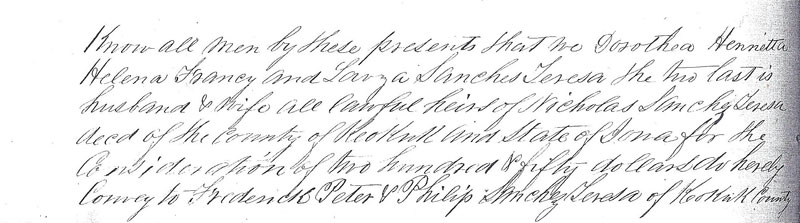 Know all men by these presents that we Dorothea Henrietta
Helena Francy and Lavza Sanches Teresa the two last is
husband & wife all lawful heirs of Nicholas Sanchez Teresa
decd of the County of Keokuk and State of Iowa for the
Consideration of two hundred & fifty dollars do hereby
Convey to Frederick Peter & Philip Sanchez Teresa of Keokuk County